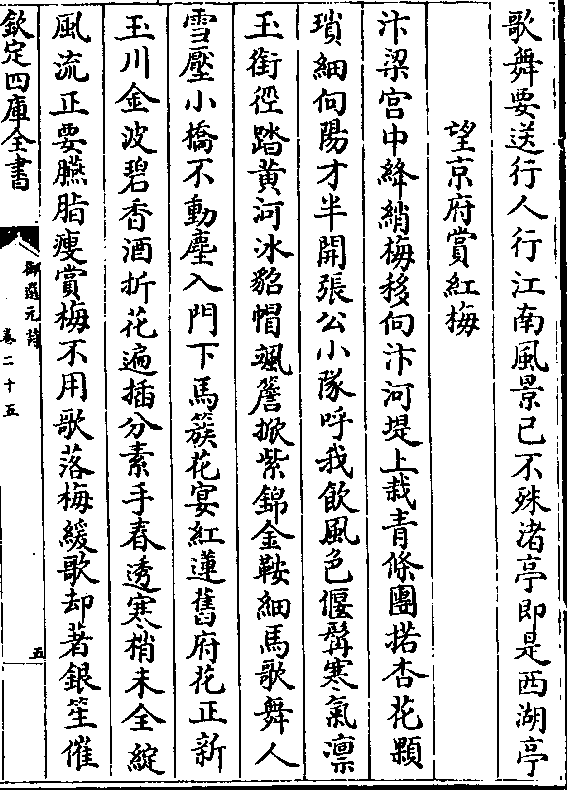 歌舞要送行人行江南風景已不殊渚亭即是西湖亭
望京府賞紅梅
汴梁宫中絳綃梅移向汴河堤上栽青條團搭杏花顆
瑣細向陽才半開張公小隊呼我飲風色偃鬅寒氣凛
玉街徑踏黄河冰貂帽颯簷掀紫錦金鞍細馬歌舞人
雪壓小橋不動塵入門下馬簇花宴紅蓮舊府花正新
玉川金波碧香酒折花遍插分素手春透寒梢未全綻
風流正要臙脂瘦賞梅不用歌落梅緩歌却著銀笙催
欽定四庫全書
御選元詩
卷二十五
五